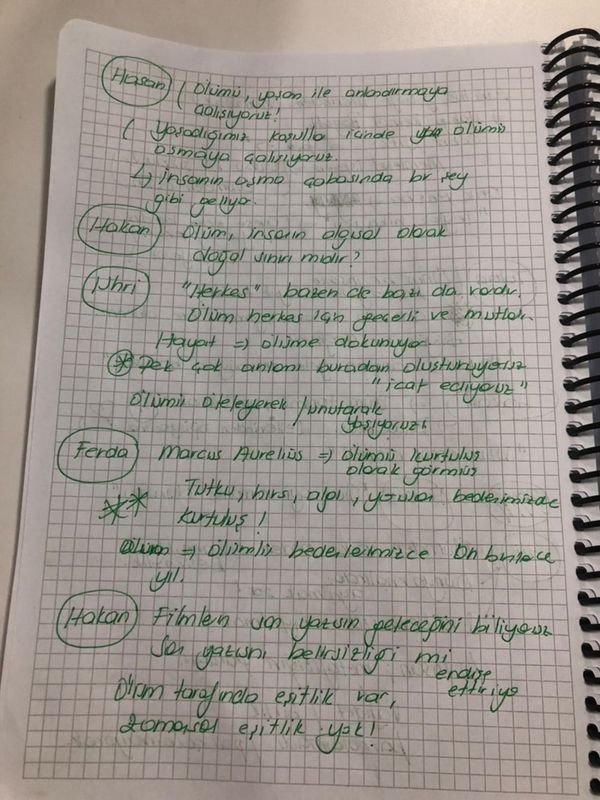 Hasan ( Ölümü, yaşam ile anlandırmaya
çalışıyoruz!
( Yaşadığımız koşulla içinde ölümü
aşmaya çalışıyoruz.
↳ İnsanın aşma çabasında bir şey
gibi geliyor.
Hakan Ölüm, insanın algısal olarak
doğal sınırı mıdır?
"Herkes" bazen de bazı da vardır.
Ölüm herkes için geçerli ve mutlak.
Hayat => ölüme dokunuyor
* Pek çok anlamı buradan oluşturuyoruz
"icat ediyoruz"
Ölümü öteleyerek / unutarak
yaşıyoruz!
Ferda Marcus Aurelius => ölümü kurtuluş
olarak görmüş
** Tutku, hırs, algı, bedenimizde
kurtuluş!
Ölüm => ölümlü bedenlerimizce On binlerce
yıl.
Hakan Filmlerin son yazısın geleceğini biliyoruz
Son yazısını belirsizliği mi
endişe
ettiriyo
Ölüm tarafında eşitlik var,
zamansal eşitlik yok!